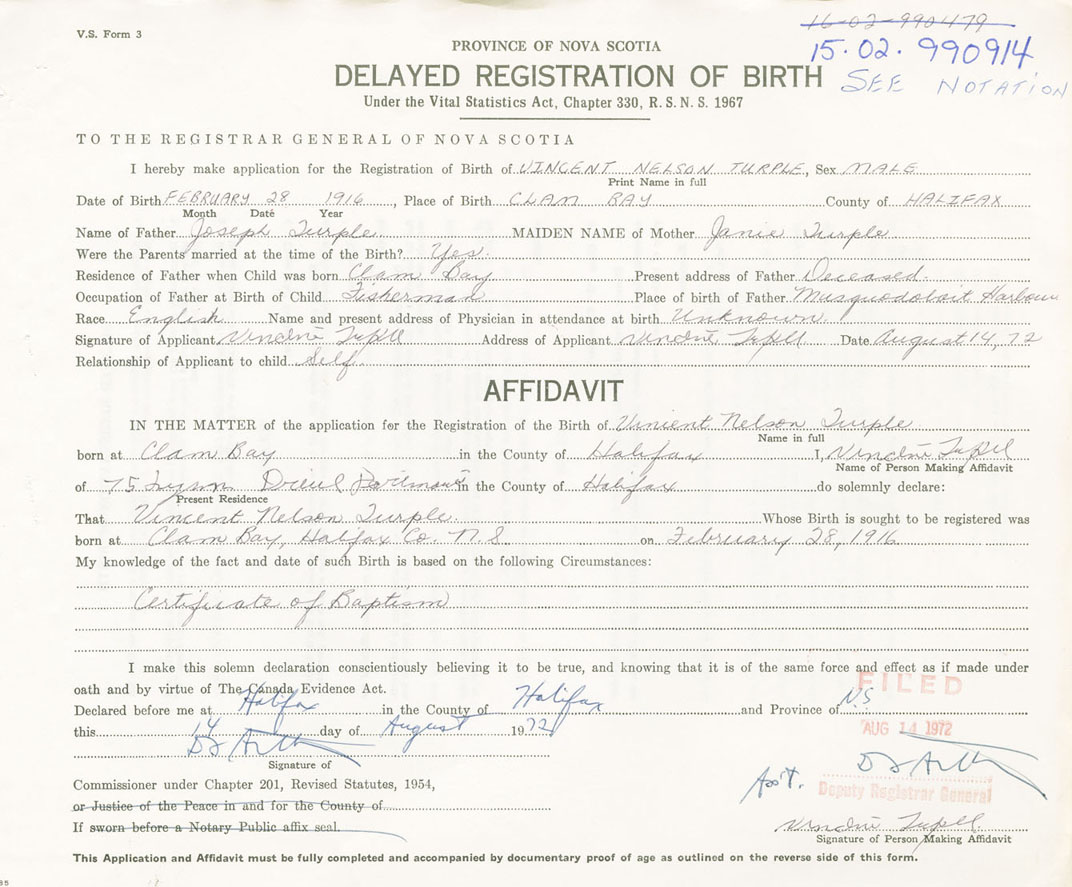 V.S. Form 3
16-02-990479
15·02·990914
SEE NOTATION
PROVINCE OF NOVA SCOTIA
DELAYED REGISTRATION OF BIRTH
Under the Vital Statistics Act, Chapter 330, R. S. N. S. 1967
TO THE REGISTRAR GENERAL OF NOVA SCOTIA
I hereby make application for the Registration of Birth of VINCENT NELSON TURPLE, Sex MALE
Print Name in full
Date of Birth FEBRUARY 28 1916, Place of Birth CLAM BAY County of HALIFAX
Month Date Year
Name of Father Joseph Turple MAIDEN NAME of Mother Janie Turple
Were the Parents married at the time of the Birth? Yes.
Residence of Father when Child was born Clam Bay Present address of Father Deceased.
Occupation of Father at Birth of Child Fisherman Place of birth of Father Musquodoboit Harbour
Race English Name and present address of Physician in attendance at birth Unknown.
Signature of Applicant Address of Applicant Date August 14, 72
Relationship of Applicant to child Self
AFFIDAVIT
IN THE MATTER of the application for the Registration of the Birth of Vincent Nelson Turple
Name in full
born at Clam Bay in the County of Halifax I,
Name of Person Making Affidavit
of 75 in the County of Halifax do solemnly declare:
Present Residence
That Vincent Nelson Turple. Whose Birth is sought to be registered was
born at Clam Bay, Halifax Co. N.S. on February 28, 1916
My knowledge of the fact and date of such Birth is based on the following Circumstances:
Certificate of Baptism
I make this solemn declaration conscientiously believing it to be true, and knowing that it is of the same force and effect as if made under
oath and by virtue of The Canada Evidence Act.
FILED
Declared before me at Halifax in the County of Halifax and Province of N.S
this 14 day of August 1972
AUG 14 1972
Signature of
Commissioner under Chapter 201, Revised Statutes, 1954,
Ass't.
Deputy Registrar General
or Justice of the Peace in and for the County of
If sworn before a Notary Public affix seal.
Signature of Person Making Affidavit
This Application and Affidavit must be fully completed and accompanied by documentary proof of age as outlined on the reverse side of this form.